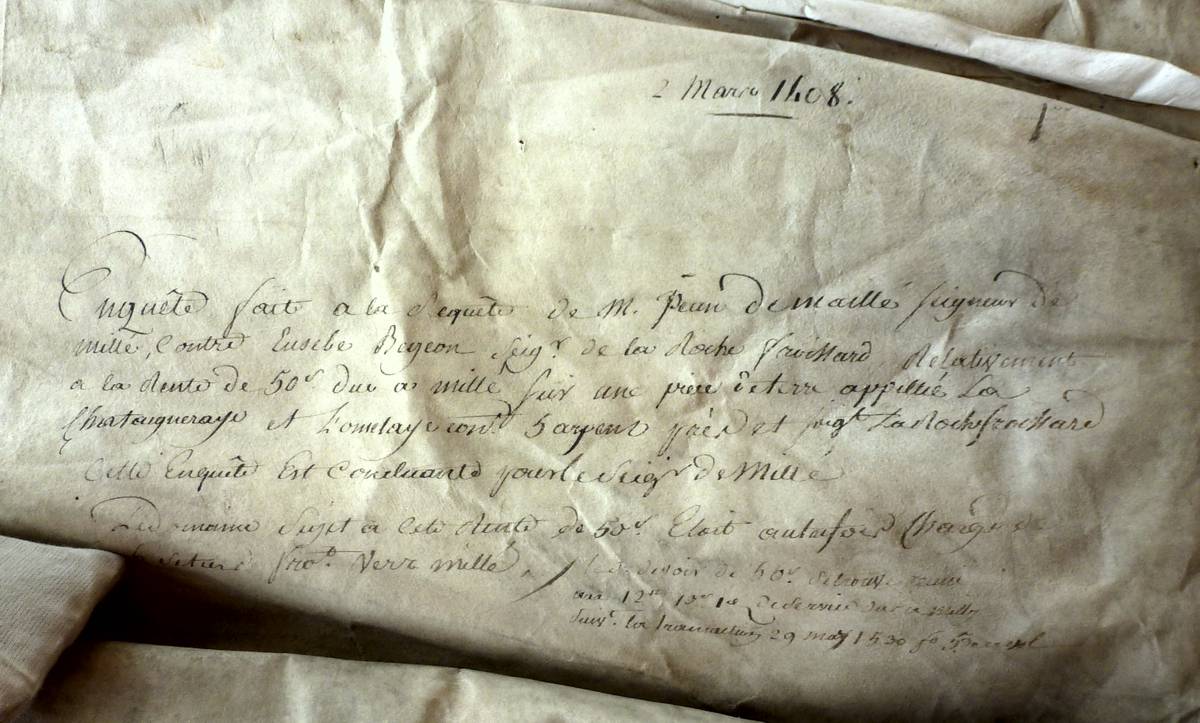 2 Mars 1408.
1er
Enquête fait a la Requête de M. Jean de maillé seigneur de
millé, Contre Eusebe Bageon Seigr. de la Roche froissard Relativement
a la Rente de 50s due a millé sur une piece de terre appellée La
Chataigneraye et Lomelaye contt. 5 arpent près et joigt. La Rochefroissard
Cette Enquête Est Concluante pour le Seigr. de Millé
Le domaine Sujet a cete Rente de 50s Etoit autrefois Chargé de
frot. Vers millé,
Le devoir de 50s se trouve
au 12 due a milly
suivt. la transaction 29 may 1530